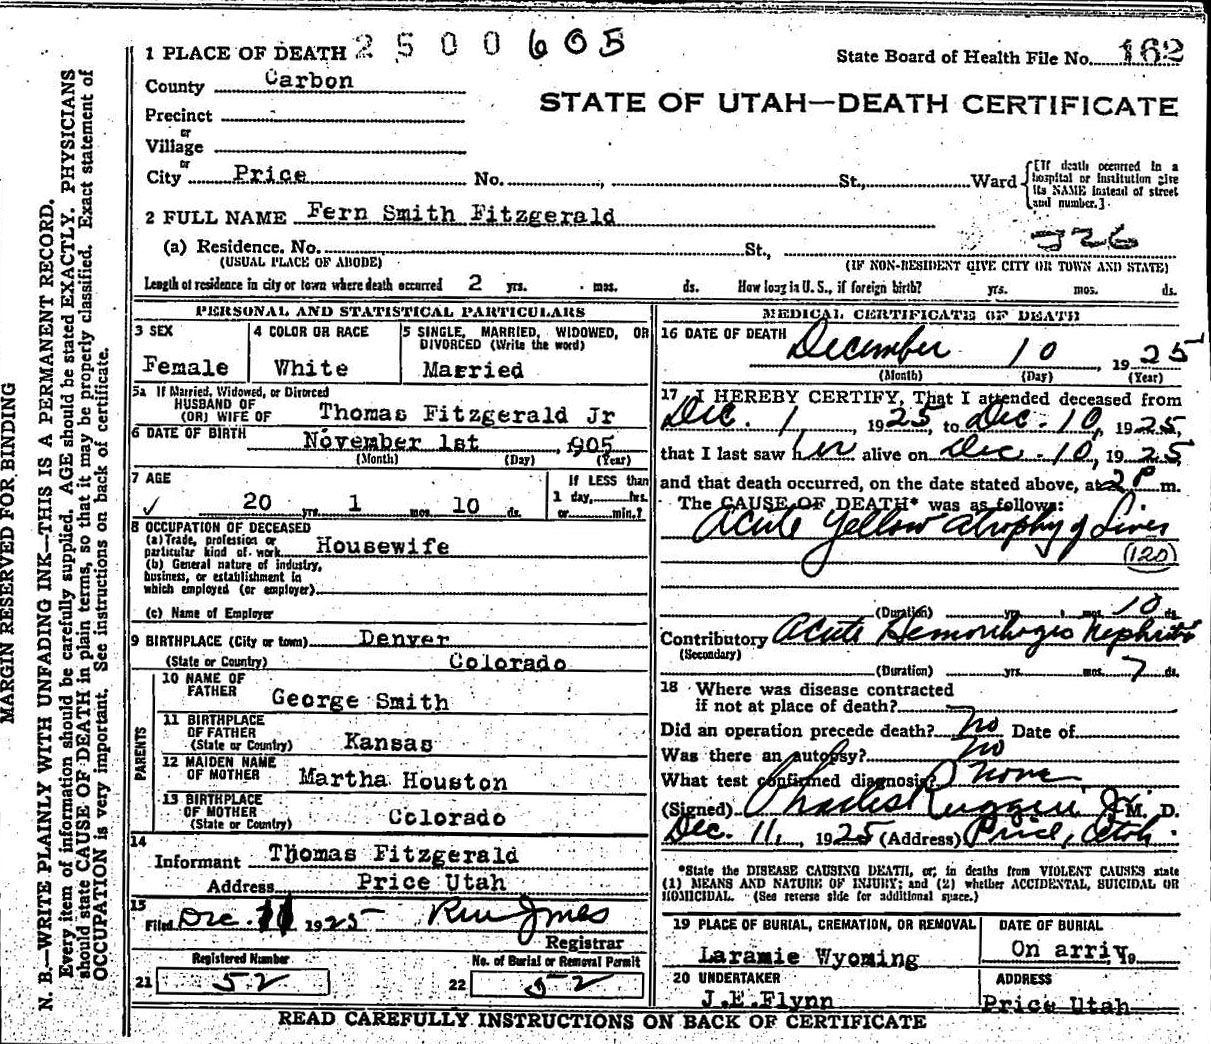 1 PLACE OF DEATH 2 5 0 0 605
State Board of Health File No. 162
County Carbon
STATE OF UTAH—DEATH CERTIFICATE
Precinct
or
Village
or
City Price No. St., Ward
{[If death occurred in a hospital or institution give its NAME instead of street and number.]
2 FULL NAME Fern Smith Fitzgerald
(a) Residence. No. St.,
(USUAL PLACE OF ABODE) (IF NON-RESIDENT GIVE CITY OR TOWN AND STATE)
Length of residence in city or town where death occurred 2 yrs. mos. ds. How long in U. S., if foreign birth? yrs. mos. ds.
PERSONAL AND STATISTICAL PARTICULARS
3 SEX 4 COLOR OR RACE 5 SINGLE, MARRIED, WIDOWED, OR
DIVORCED (Write the word)
Female White Married
5a If Married, Widowed, or Divorced
HUSBAND OF
(OR) WIFE OF Thomas Fitzgerald Jr
6 DATE OF BIRTH November 1st 905
(Month) (Day) (Year)
7 AGE If LESS than
1 day, hrs.
20 yrs. 1 mos. 10 ds. or min.?
8 OCCUPATION OF DECEASED
(a) Trade, profession or
particular kind of work Housewife
(b) General nature of industry,
business, or establishment in
which employed (or employer)
(c) Name of Employer
9 BIRTHPLACE (City or town) Denver
(State or Country) Colorado
PARENTS
10 NAME OF
FATHER George Smith
11 BIRTHPLACE
OF FATHER
(State or Country) Kansas
12 MAIDEN NAME
OF MOTHER Martha Houston
13 BIRTHPLACE
OF MOTHER
(State or Country) Colorado
14
Informant Thomas Fitzgerald
Address Price Utah
15
Filed Dec. 11 1925
Registrar
Registered Number No. of Burial or Removal Permit
21 52 22 52
MEDICAL CERTIFICATE OF DEATH
16 DATE OF DEATH December 10, 1925
(Month) (Day) (Year)
17 I HEREBY CERTIFY, That I attended deceased from
Dec. 1, 1925, to Dec. 10, 1925,
that I last saw her alive on Dec. 10, 1925,
and that death occurred, on the date stated above, at 2 P m.
The CAUSE OF DEATH* was as follows:
Acute Yellow atrophy of Liver
(120)
(Duration) yrs. mos. 10 ds.
Contributory Acute Hemorrhagic Nephritis
(Secondary)
(Duration) yrs. mos. 7 ds.
18 Where was disease contracted
if not at place of death?
Did an operation precede death? no Date of
Was there an autopsy? no
What test confirmed diagnosis? none
(Signed) Charles Ruggeri, Jr M. D.
Dec. 11, 1925 (Address) Price, Utah.
*State the DISEASE CAUSING DEATH, or, in deaths from VIOLENT CAUSES state
(1) MEANS AND NATURE OF INJURY; and (2) whether ACCIDENTAL, SUICIDAL OR
HOMICIDAL. (See reverse side for additional space.)
19 PLACE OF BURIAL, CREMATION, OR REMOVAL DATE OF BURIAL
Laramie Wyoming On arriv, 19
20 UNDERTAKER ADDRESS
J.E.Flynn Price Utah
READ CAREFULLY INSTRUCTIONS ON BACK OF CERTIFICATE
MARGIN RESERVED FOR BINDING
N. B.—WRITE PLAINLY WITH UNFADING INK—THIS IS A PERMANENT RECORD.
Every item of information should be carefully supplied. AGE should be stated EXACTLY. PHYSICIANS
should state CAUSE OF DEATH in plain terms, so that it may be properly classified. Exact statement of
OCCUPATION is very important. See instructions on back of certificate.